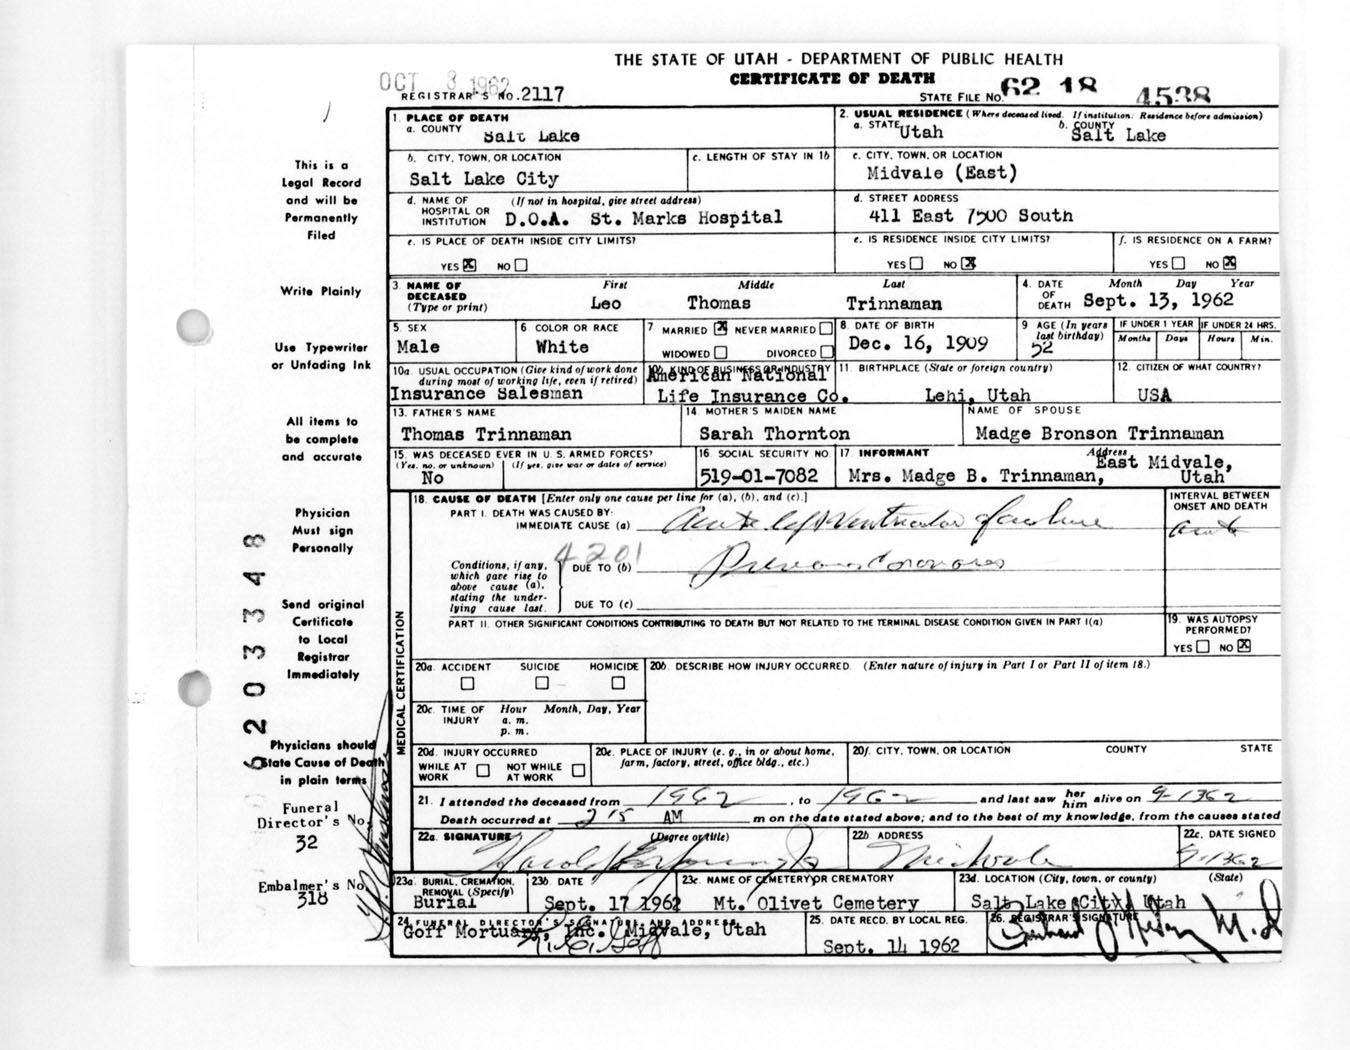 THE STATE OF UTAH - DEPARTMENT OF PUBLIC HEALTH
CERTIFICATE OF DEATH
OCT 8 1962
REGISTRAR'S NO. 2117
STATE FILE NO. 62 18 4538
1. PLACE OF DEATH
a. COUNTY Salt Lake
2. USUAL RESIDENCE (Where deceased lived. If institution: Residence before admission)
a. STATE Utah b. COUNTY Salt Lake
b. CITY, TOWN, OR LOCATION
Salt Lake City
c. LENGTH OF STAY IN 1b
c. CITY, TOWN, OR LOCATION
Midvale (East)
d. NAME OF HOSPITAL OR INSTITUTION (If not in hospital, give street address)
D.O.A. St. Marks Hospital
d. STREET ADDRESS
411 East 7500 South
e. IS PLACE OF DEATH INSIDE CITY LIMITS?
YES X NO
e. IS RESIDENCE INSIDE CITY LIMITS?
YES NO X
f. IS RESIDENCE ON A FARM?
YES NO X
3. NAME OF DECEASED (Type or print)
First Middle Last
Leo Thomas Trinnaman
4. DATE OF DEATH Month Day Year
Sept. 13, 1962
5. SEX
Male
6 COLOR OR RACE
White
7 MARRIED X NEVER MARRIED
WIDOWED DIVORCED
8. DATE OF BIRTH
Dec. 16, 1909
9 AGE (In years last birthday)
52
IF UNDER 1 YEAR
Months Days
IF UNDER 24 HRS.
Hours Min.
10a. USUAL OCCUPATION (Give kind of work done during most of working life, even if retired)
Insurance Salesman
10b. KIND OF BUSINESS OR INDUSTRY
American National
Life Insurance Co.
11. BIRTHPLACE (State or foreign country)
Lehi, Utah
12. CITIZEN OF WHAT COUNTRY?
USA
13. FATHER'S NAME
Thomas Trinnaman
14. MOTHER'S MAIDEN NAME
Sarah Thornton
NAME OF SPOUSE
Madge Bronson Trinnaman
15. WAS DECEASED EVER IN U. S. ARMED FORCES?
(Yes, no, or unknown) (If yes, give war or dates of service)
No
16. SOCIAL SECURITY NO.
519-01-7082
17. INFORMANT Address
Mrs. Madge B. Trinnaman, East Midvale, Utah
18. CAUSE OF DEATH [Enter only one cause per line for (a), (b), and (c).]
PART I. DEATH WAS CAUSED BY:
IMMEDIATE CAUSE (a) Acute left Ventricular failure
INTERVAL BETWEEN ONSET AND DEATH
acute
4201
Conditions, if any, which gave rise to above cause (a), stating the underlying cause last.
DUE TO (b) Previous Coronaries
DUE TO (c)
PART II. OTHER SIGNIFICANT CONDITIONS CONTRIBUTING TO DEATH BUT NOT RELATED TO THE TERMINAL DISEASE CONDITION GIVEN IN PART I(a)
19. WAS AUTOPSY PERFORMED?
YES NO X
MEDICAL CERTIFICATION
20a. ACCIDENT SUICIDE HOMICIDE
20b. DESCRIBE HOW INJURY OCCURRED. (Enter nature of injury in Part I or Part II of item 18.)
20c. TIME OF INJURY Hour Month, Day, Year
a. m.
p. m.
20d. INJURY OCCURRED
WHILE AT WORK NOT WHILE AT WORK
20e. PLACE OF INJURY (e. g., in or about home, farm, factory, street, office bldg., etc.)
20f. CITY, TOWN, OR LOCATION COUNTY STATE
21. I attended the deceased from 1962, to 1962 and last saw her him alive on 9-1362
Death occurred at 2 15 AM m on the date stated above; and to the best of my knowledge, from the causes stated
22a. SIGNATURE (Degree or title)
22b. ADDRESS
Midvale
22c. DATE SIGNED
9-1362
23a. BURIAL, CREMATION, REMOVAL (Specify)
Burial
23b. DATE
Sept. 17 1962
23c. NAME OF CEMETERY OR CREMATORY
Mt. Olivet Cemetery
23d. LOCATION (City, town, or county) (State)
Salt Lake City Utah
24. FUNERAL DIRECTOR'S SIGNATURE AND ADDRESS
Goff Mortuary, Inc. Midvale, Utah
25. DATE RECD. BY LOCAL REG.
Sept. 14 1962
26. REGISTRAR'S SIGNATURE
M.D
This is a
Legal Record
and will be
Permanently
Filed
Write Plainly
Use Typewriter
or Unfading Ink
All items to
be complete
and accurate
Physician
Must sign
Personally
Send original
Certificate
to Local
Registrar
Immediately
Physicians should
State Cause of Death
in plain terms
Funeral
Director's No.
32
Embalmer's No.
318
6203348